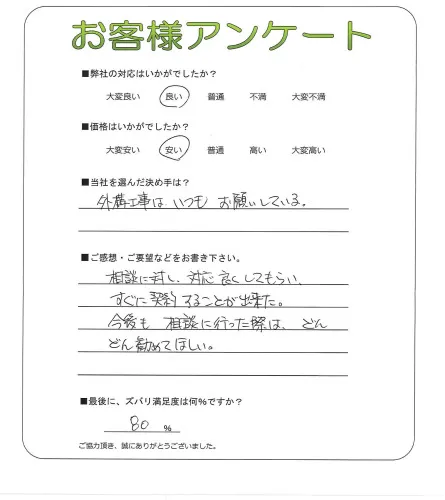 お客様アンケート
■弊社の対応はいかがでしたか？
大変良い 良い 普通 不満 大変不満
■価格はいかがでしたか？
大変安い 安い 普通 高い 大変高い
■当社を選んだ決め手は？
外構工事は いつも お願いしている。
■ご感想・ご要望などをお書き下さい。
相談に対し、対応良くしてもらい、
すぐに契約することが出来た。
今後も 相談に行った際は、どん
どん勧めてほしい。
■最後に、ズバリ満足度は何％ですか？
80 ％
ご協力頂き、誠にありがとうございました。